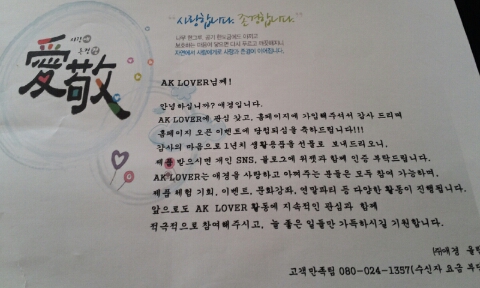 "사랑합니다. 존경합니다."
나무 한그루, 공기 한모금에도 아끼고
보호하는 마음이 닿으면 다시 푸르고 깨끗해지니
자연에서 사람에게로 사랑과 존경이 이어집니다.
愛敬
사랑 애
공경 경
AK LOVER님께!
안녕하십니까? 애경입니다.
AK LOVER에 관심 갖고, 홈페이지에 가입해주셔서 감사 드리며
홈페이지 오픈 이벤트에 당첨되심을 축하드립니다!!!
감사의 마음으로 1년치 생활용품을 선물로 보내드리오니,
제품 받으시면 개인 SNS, 블로그에 위젯과 함께 인증 부탁드립니다.
AK LOVER는 애경을 사랑하고 아껴주는 분들은 모두 참여 가능하며,
제품 체험 기회, 이벤트, 문화강좌, 연말파티 등 다양한 활동이 진행됩니다.
앞으로도 AK LOVER 활동에 지속적인 관심과 함께
적극적으로 참여해주시고, 늘 좋은 일들만 가득하시길 기원합니다.
㈜애경
고객만족팀 080-024-1357(수신자 요금 부담